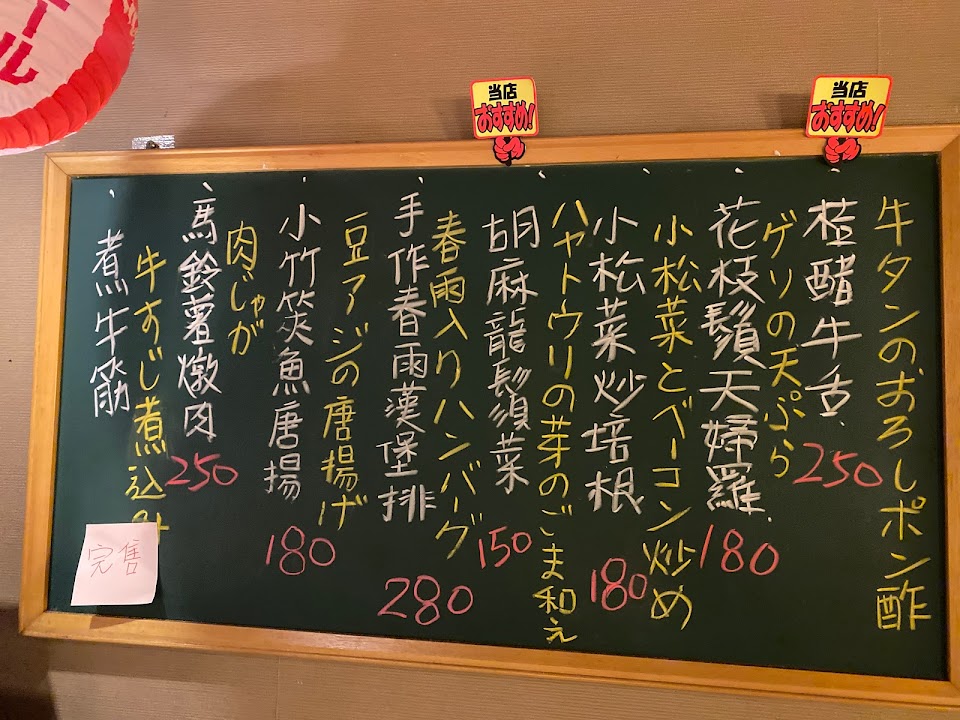 ール
当店
おすすめ!
当店
おすすめ!
牛タンのおろしポン酢
桂醋牛舌 250
ゲソの天ぷら
花枝鬚天婦羅 180
小松菜とベーコン炒め
小松菜炒培根 180
ハヤトウリの芽のごま和え
胡麻龍鬚菜 150
春雨入りハンバーグ
手作春雨漢堡排 280
豆アジの唐揚げ
小竹筴魚唐揚 180
肉じゃが
馬鈴薯燉肉 250
牛すじ煮込み
煮牛筋
完售